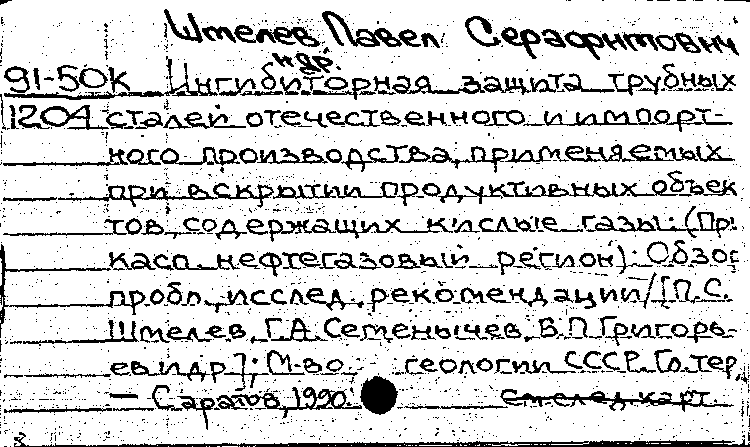 Шмелев Павел Серафимович
и др.
91-50К Ингибиторная защита трубных
1204 сталей отечественного и импорт-
ного производства, применяемых
при вскрытии продуктивных объек
тов, содержащих кислые газы: (Пр
касп. нефтегазовый регион): Обзор
пробл., исслед., рекомендации/[П.С.
Шмелев, Г.А. Семенычев, Б.П. Григорь-
ев и др.]; М-во геологии СССР.
— Саратов, 1990.